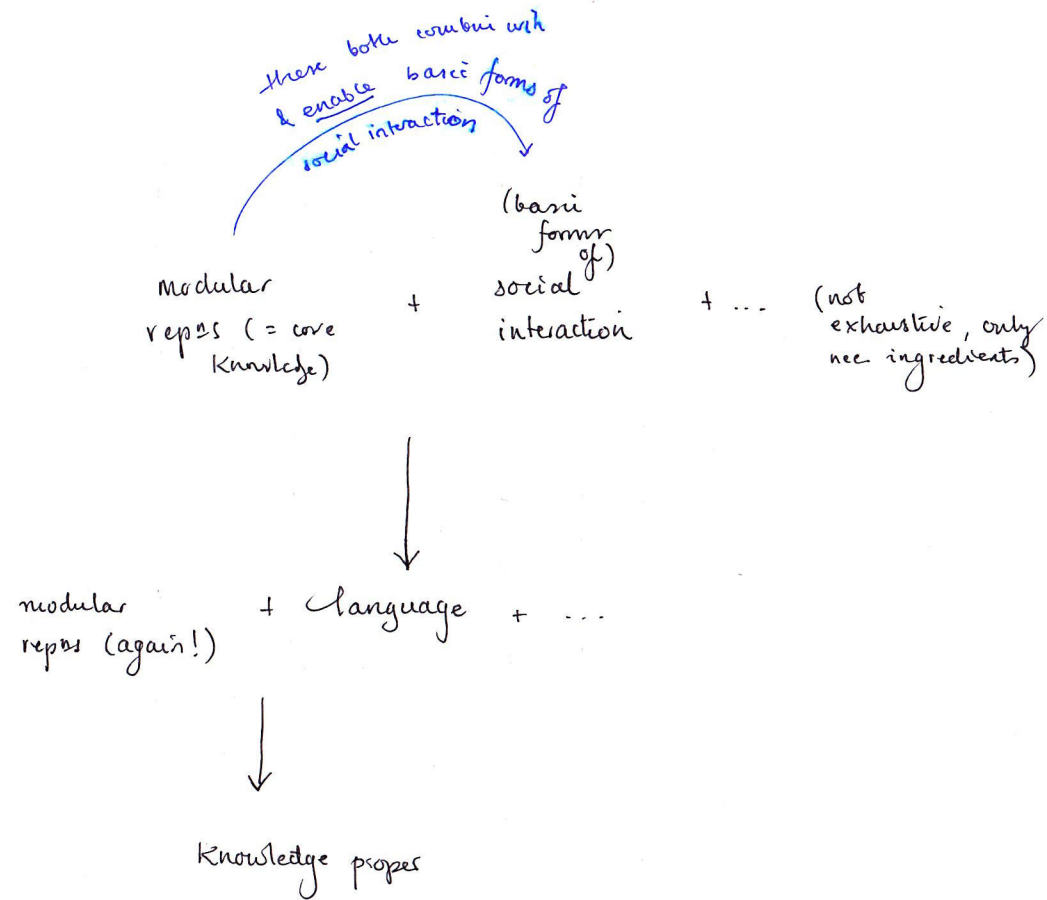 these both combine with
& enable basic forms of
social interaction
modular
repns (= core
knowledge)
+
(basic
forms
of)
social
interaction
+ ...
(not
exhaustive, only
nec ingredients)
modular
repns (again!)
+ language + ...
Knowledge proper